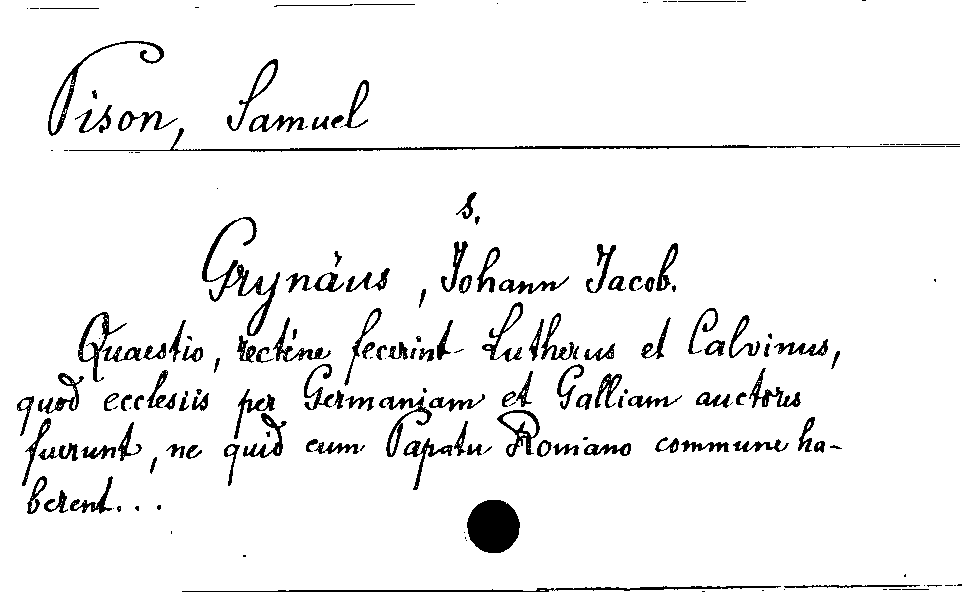 Pison, Samuel
s.
Grynäus, Johann Jacob.
Quaestio, rectene fecerint Lutherus et Calvinus,
quod ecclesiis per Germaniam et Galliam auctores
fuerunt, ne quid cum Papatu Romano commune ha-
berent...